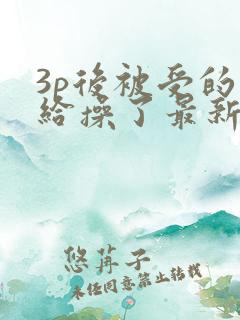 3p後被受的
給操了最新
悠苒子
未经同意禁止转载